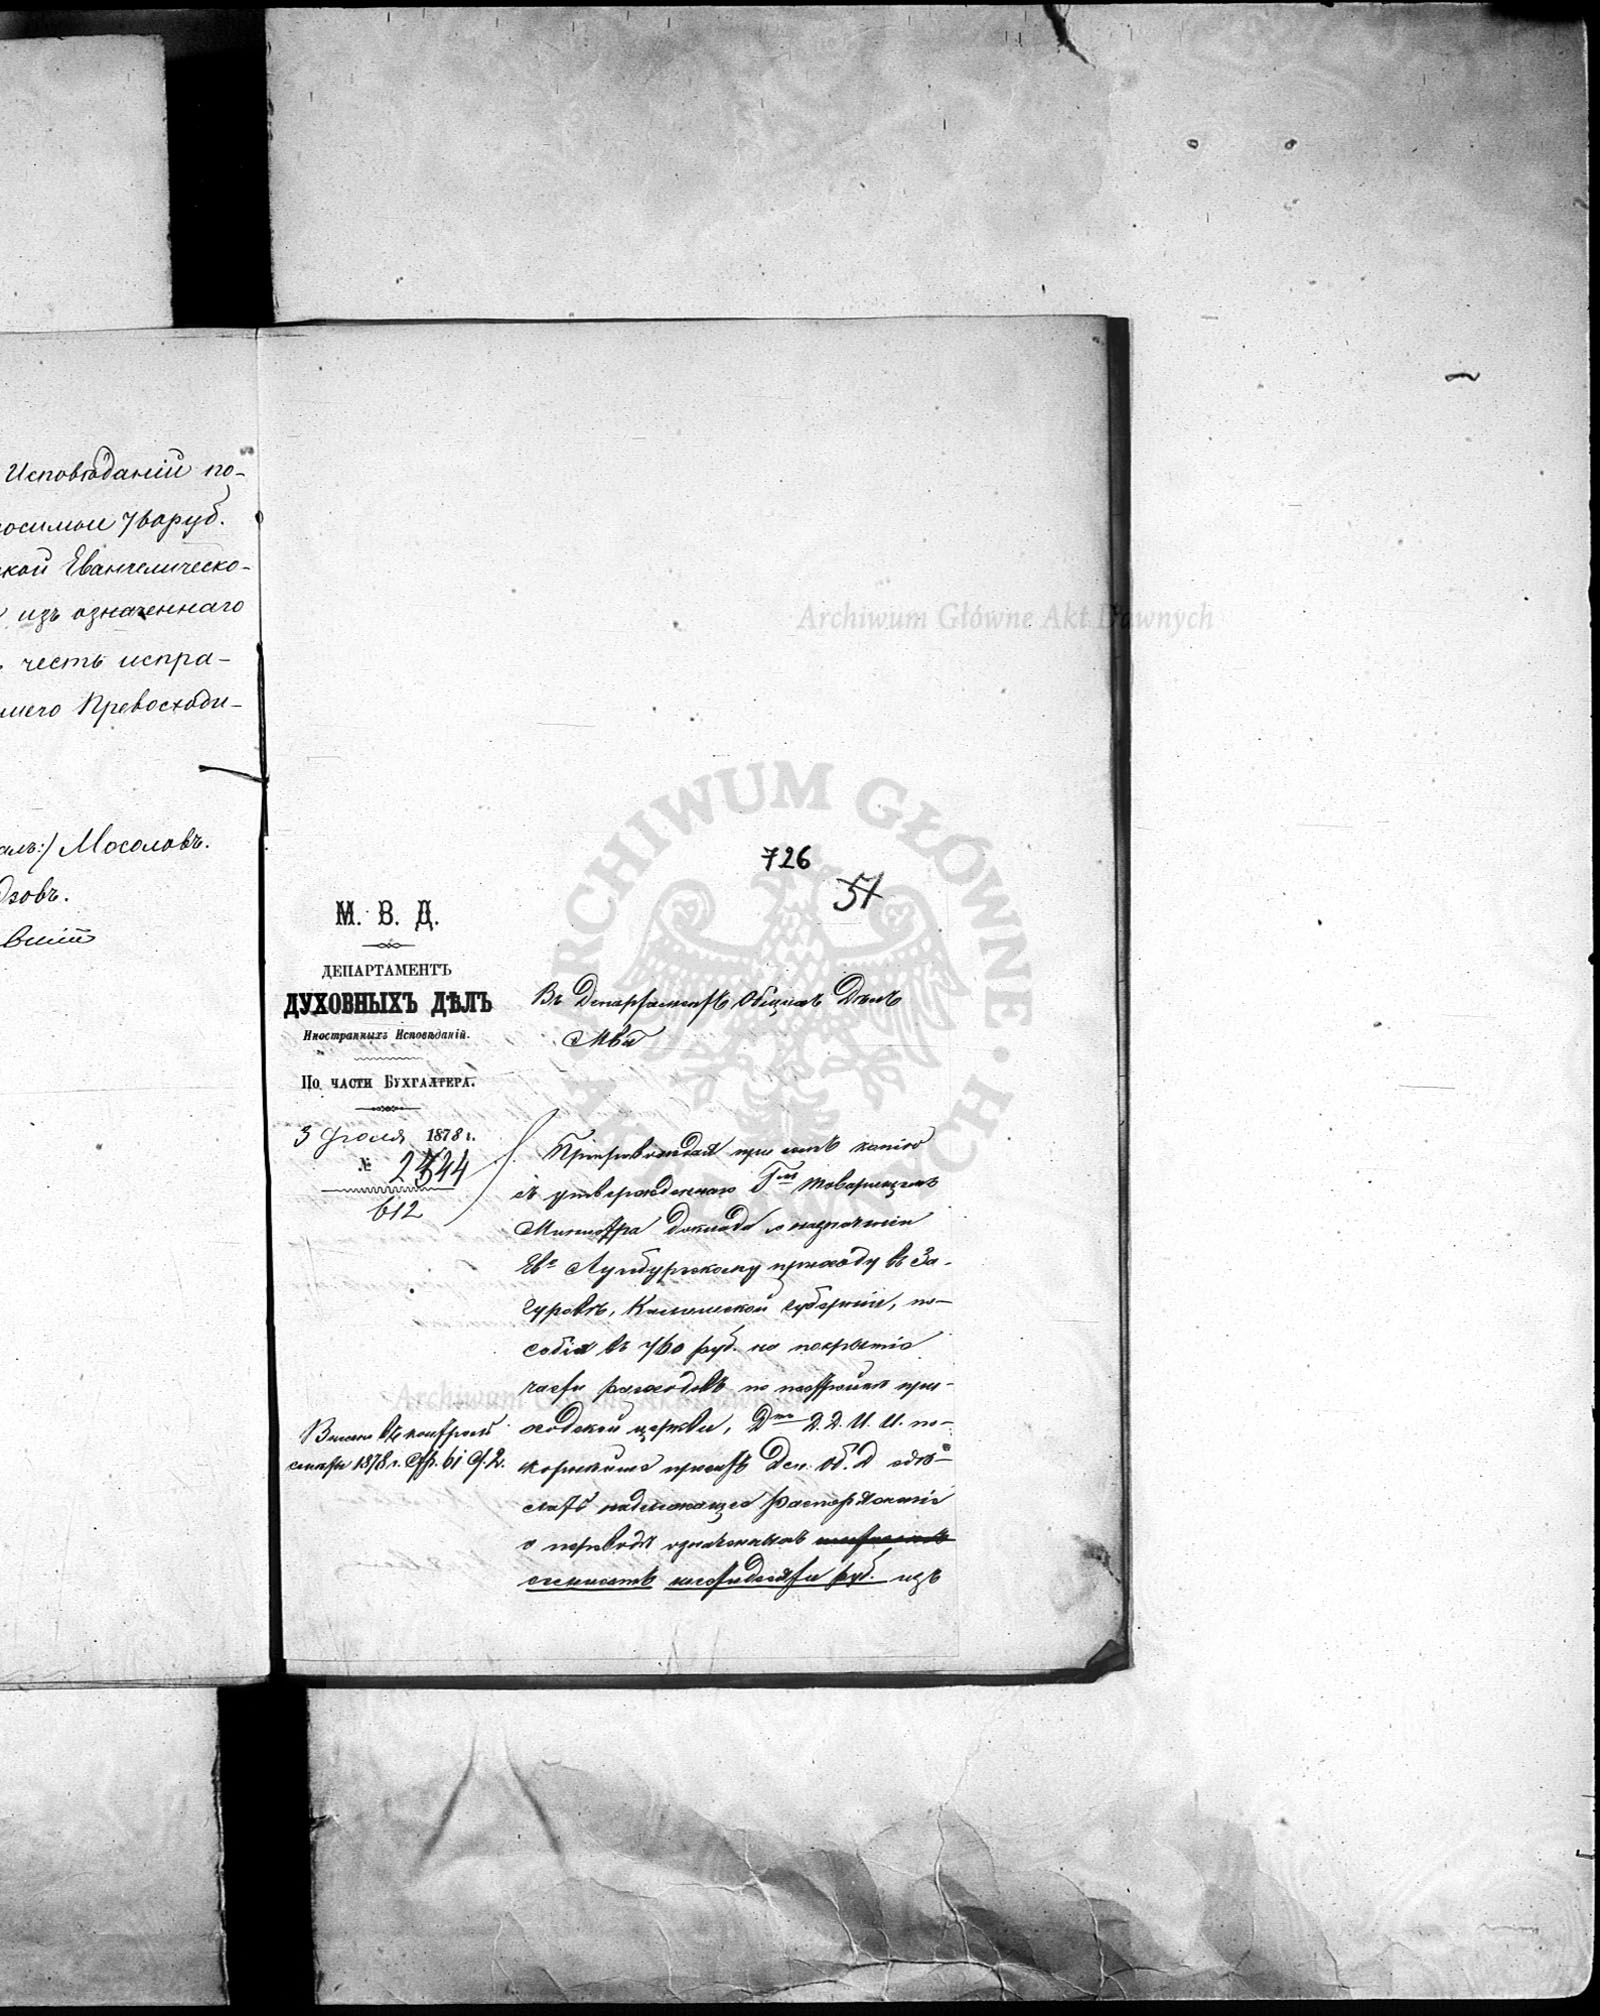 Исповѣданій по-
осимыи 760 руб.
кой Евангелическо-
изъ означеннаго
честь испра-
шего Превосходи-
алъ:) Мосоловъ.
726
51
М. В. Д.
ДЕПАРТАМЕНТЪ
ДУХОВНЫХЪ ДѢЛЪ
Иностранныхъ Исповѣданій.
По части Бухгалтера.
3 Іюля 1878 г.
№ 2344
612
Въ Департаментъ Общихъ Дѣлъ
МВД
Препровождая при семъ копію
съ утвержденнаго Гмъ Товарищемъ
Министра доклада о назначеніи
Ев. Аугсбургскому приходу въ За-
гуровѣ, Калишской губерніи, по-
собія въ 760 руб. на покрытіе
части расходовъ по постройкѣ при-
ходской церкви, Дтъ Д. Д. И. И. по-
корнѣйше проситъ Деп. Об. Д сдѣ-
лать надлежащее распоряженіе
о переводѣ означенныхъ
семисотъ шестидесяти руб. изъ
1878 г. стр. 61 ст. 2.
Archiwum Główne Akt Dawnych
ARCHIWUM GŁÓWNE AKT DAWNYCH
Archiwum Główne Akt Dawnych